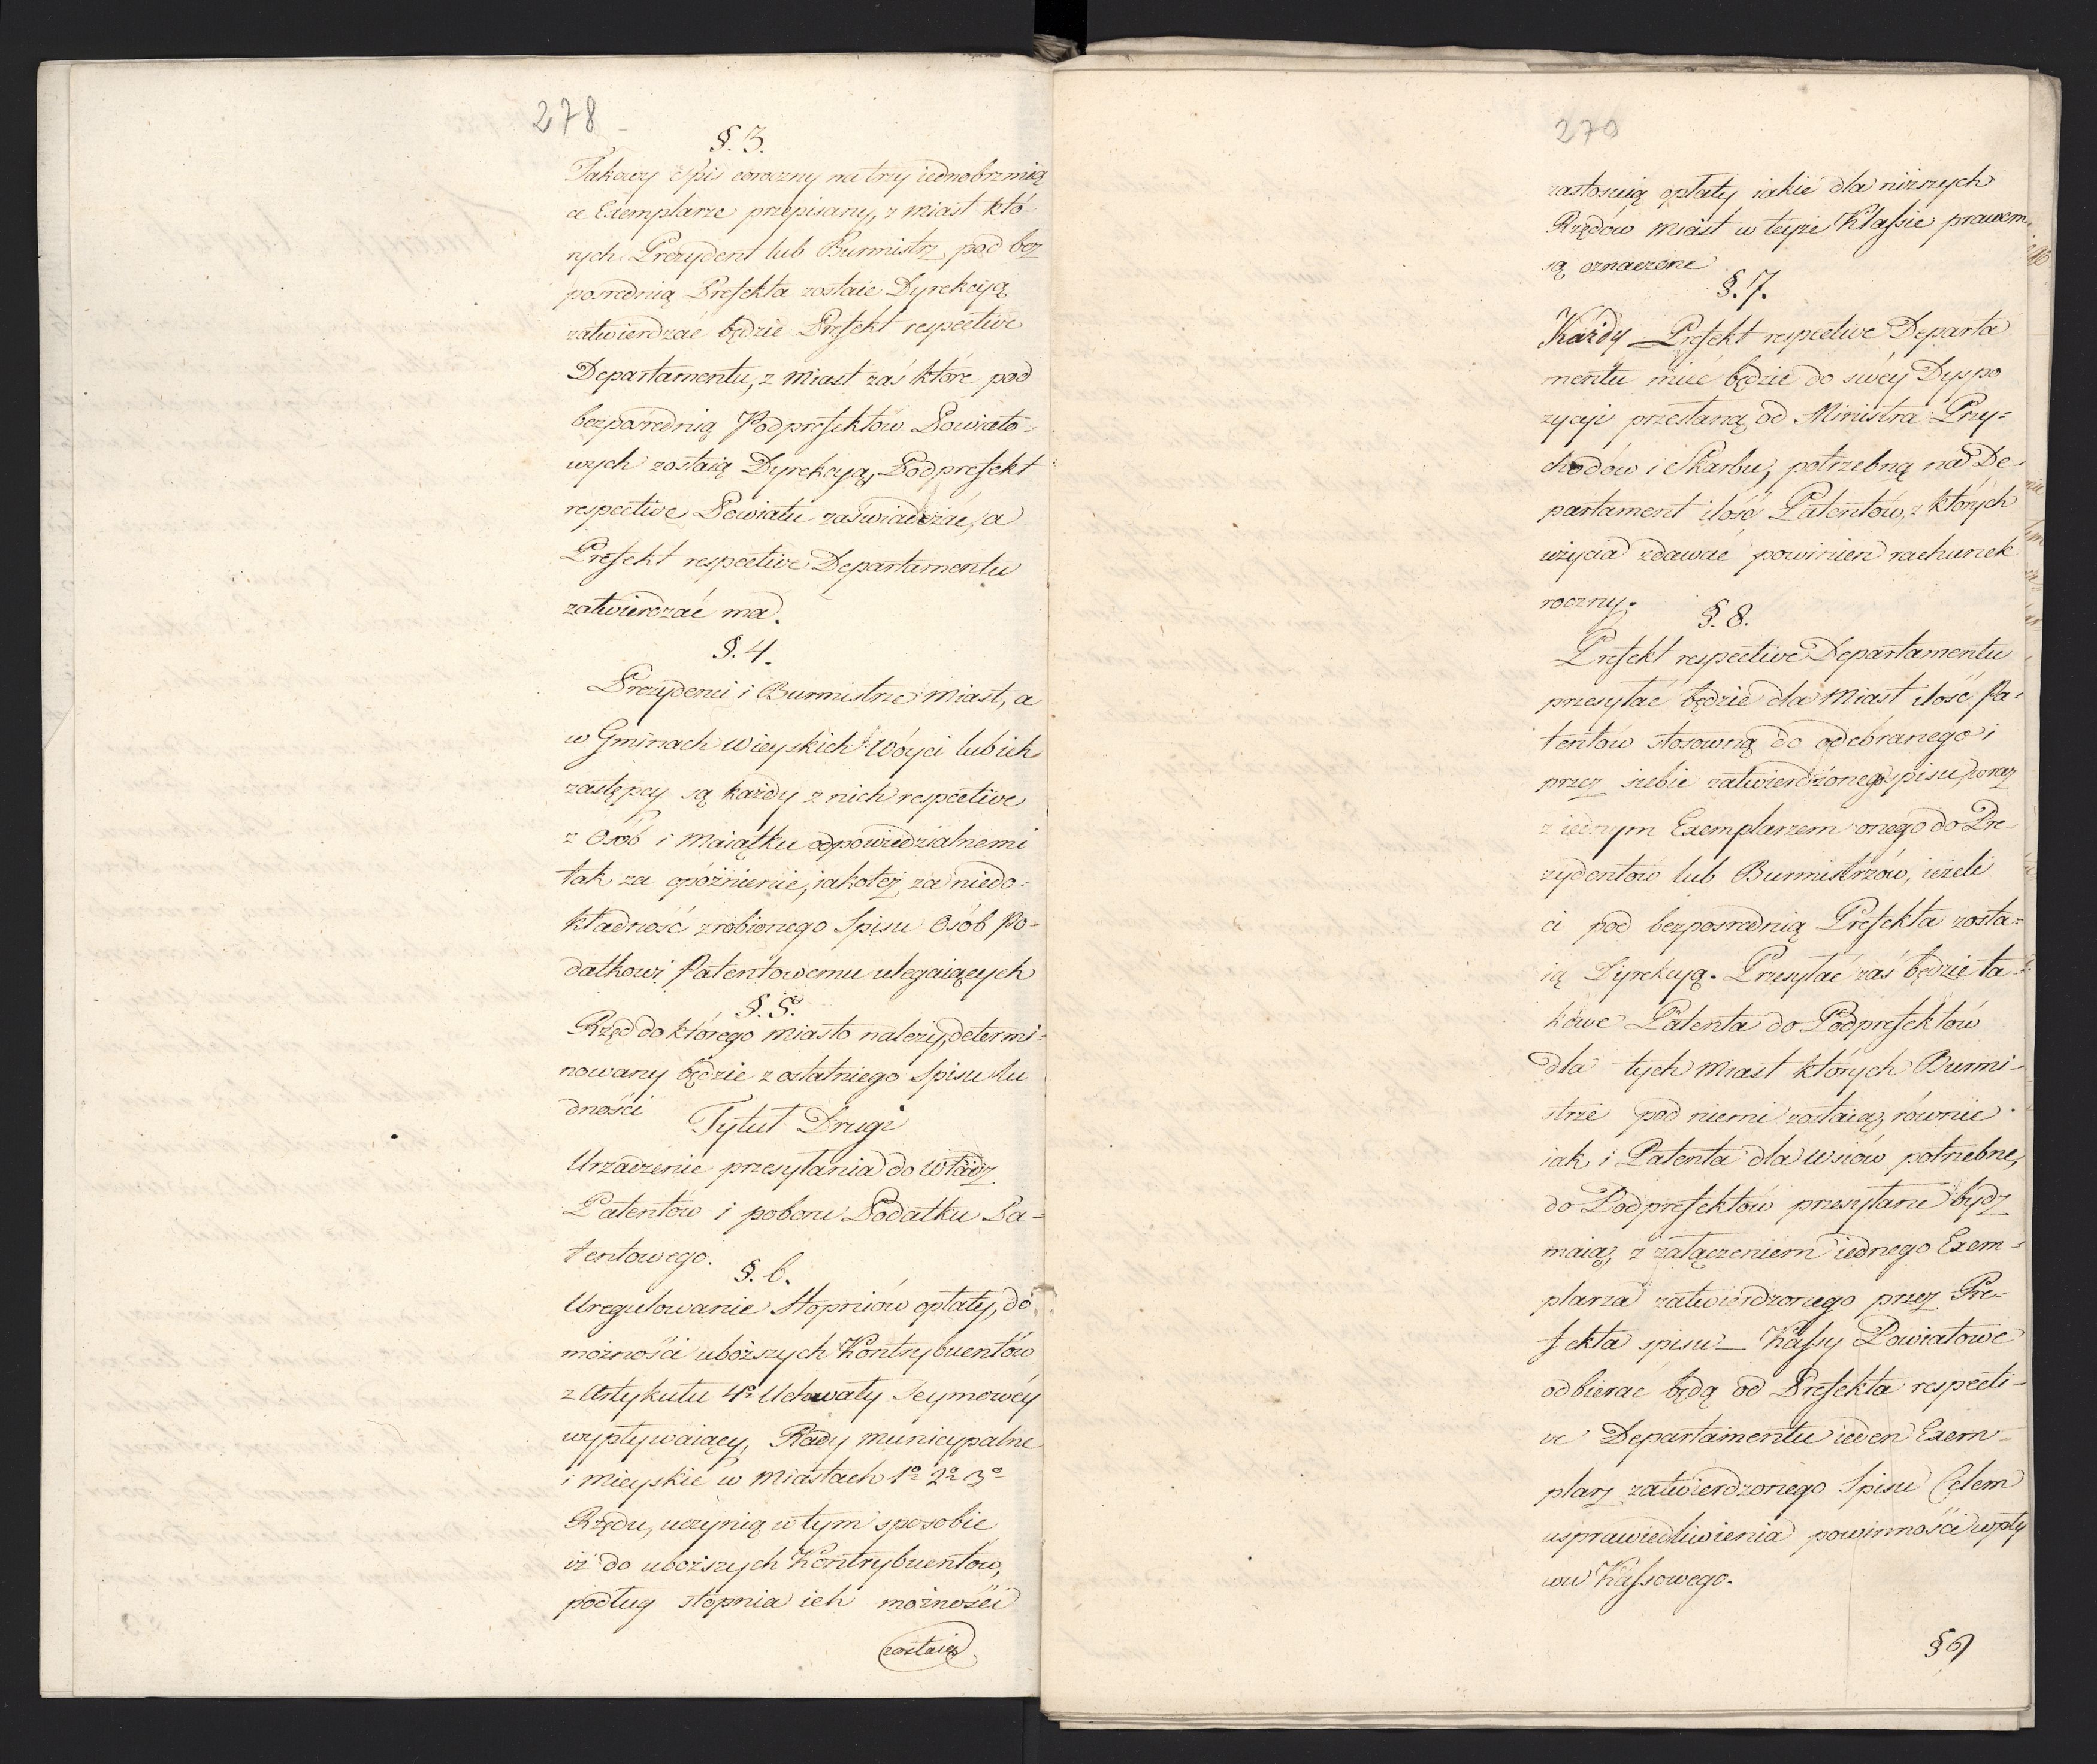 278
§. 3.
Takowy Spis coroczny na trzy iednobrzmią
ce Exemplarze przepisany, z miast któ-
rych Prezydent lub Burmistrz pod bez
posrednią Prefekta zostaie Dyrekcyą
zatwierdzać będzie Prefekt respective
Departamentu, z miast zaś które pod
bezposrednią Podprefektów Powiato-
wych zostaią Dyrekcyą, Podprefekt
respective Powiatu zaświadczać, a
Prefekt respective Departamentu
zatwierdzać ma.
§. 4.
Prezydenci i Burmistrze miast, a
w Gminach wieyskich Wóyci lub ich
zastępcy są każdy z nich respective
z Osób i maiątku odpowiedzialnemi
tak za opóźnienie, iakoteż za niedo-
kładność zrobionego Spisu Osób Po-
datkowi Patentowemu ulegaiących
§. 5.
Rząd do którego miasto należy, determi-
nowany będzie z ostatniego Spisu lu
dności
Tytuł Drugi
Urządzenie przesyłania do Władz
Patentów i poboru Podatku Pa-
tentowego.
§. 6.
Uregulowanie Stopniów opłaty, do
możności uboższych Kontrybuentów
z Artykułu 4º Uchwały Seymowéy
wypływaiący, Rady municypalne
i mieyskie w miastach 1º 2º 3º
Rzędu, uczynią w tym sposobie
iż do uboższych Kontrybuentów,
podług stopnia ich możności
zastosuią
270
zastosuią opłaty iakie dla niższych
Rzędów miast w teyże Klassie prawem
są oznaczone
§. 7.
Każdy Prefekt respective Departa
mentu mieć będzie do swéy Dyspo
zycyi przesłaną od Ministra Przy-
chodów i Skarbu, potrzebną na De-
partament ilość Patentów, z których
użycia zdawać powinien rachunek
roczny.
§. 8.
Prefekt respective Departamentu
przesyłać będzie dla miast ilość Pa-
tentów stosowną do odebranego i
przez siebie zatwierdzonego spisu, wraz
z iednym Exemplarzem onego do Pre-
zydentów lub Burmistrzów, ieżeli
ci pod bezposrednią Prefekta zosta-
ią Dyrekcyą. Przesyłać zaś będzie ta
kowe Patenta do Podprefektów
dla tych miast których Burmi-
strze pod niemi zostaią, równie
iak i Patenta dla wsiów potrzebne,
do Podprefektów przesyłane bydź
maią, z załączeniem iednego Exem-
plarza zatwierdzonego przez Pre-
fekta spisu — Kassy Powiatowe
odbierać będą od Prefekta respecti-
ve Departamentu ieden Exem-
plarz zatwierdzonego Spisu Celem
usprawiedliwienia powinności wpły
wu Kassowego.
§ 9